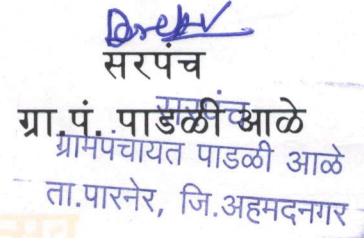 सरपंच
ग्रा.पं. पाडळी आळे
सरपंच
ग्रामपंचायत पाडळी आळे
ता.पारनेर, जि.अहमदनगर